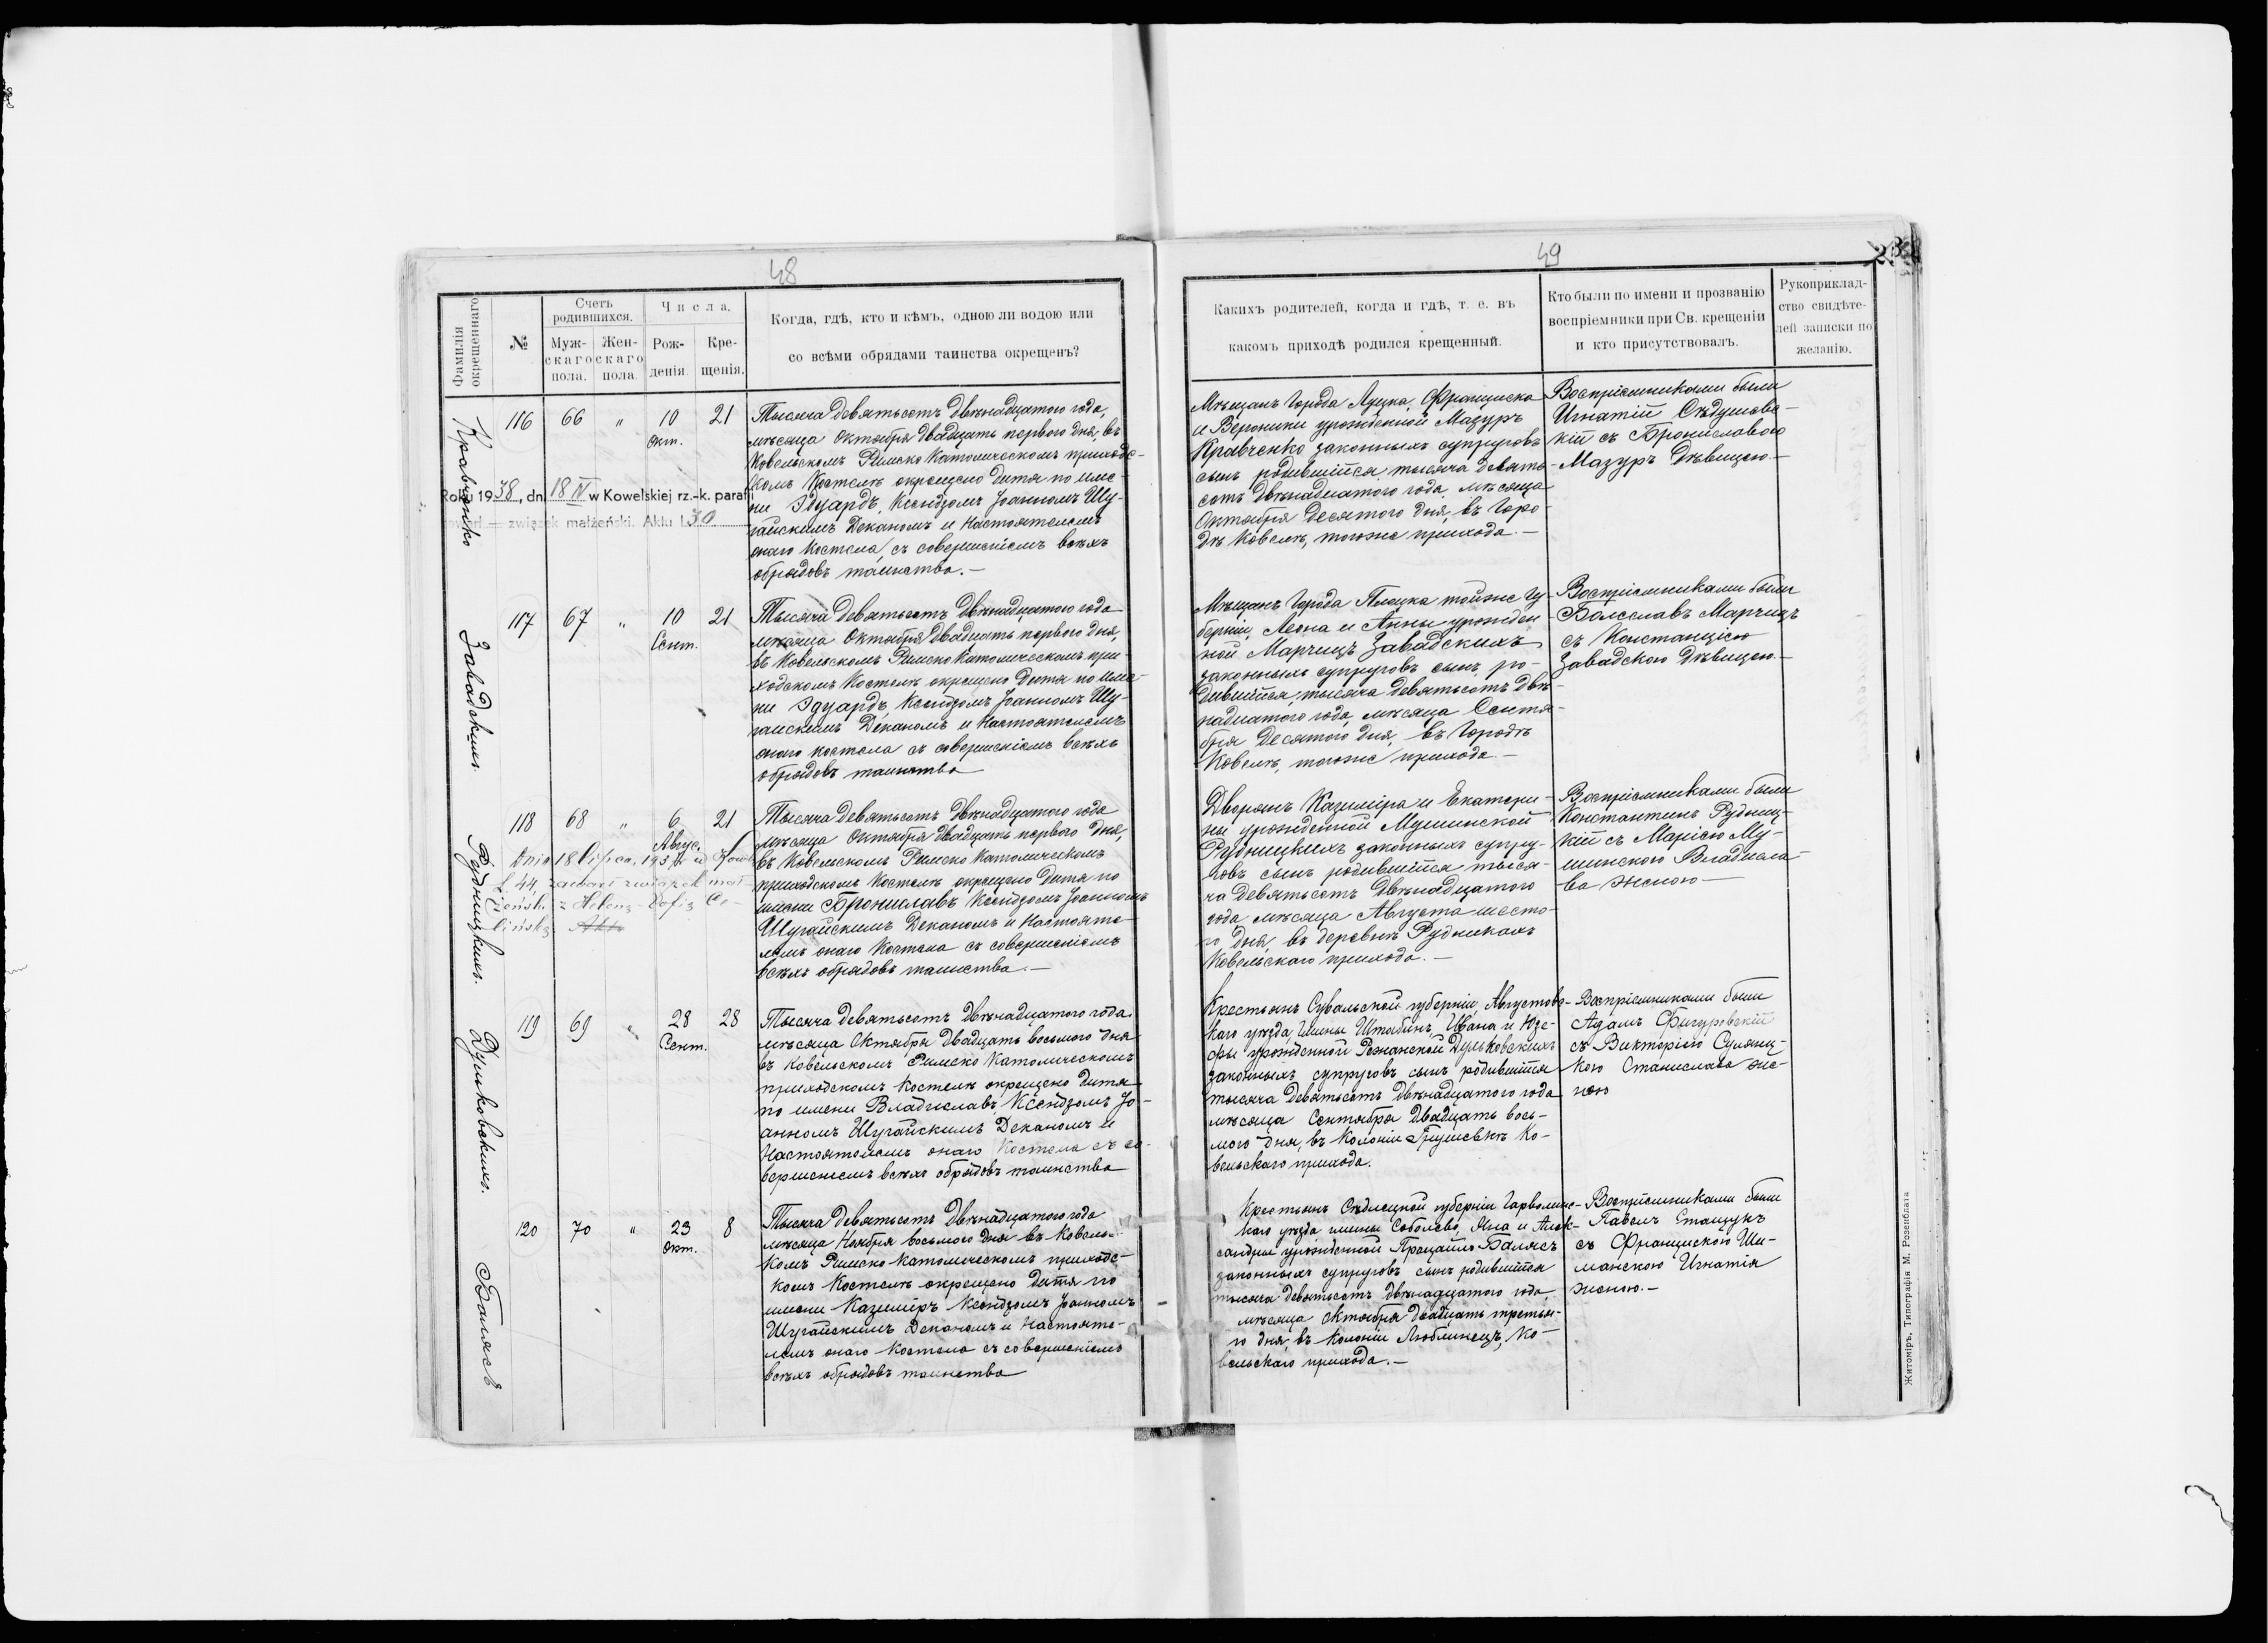 48
Фамилія окрещеннаго.
№
Счетъ родившихся.
Муж-скаго пола.
Жен-скаго пола.
Числа.
Рож-денія.
Кре-щенія.
Когда, гдѣ, кто и кѣмъ, одною ли водою или
со всѣми обрядами таинства окрещенъ?
Кравченко
116 66 " 10 Окт. 21
Тысяча девятьсотъ двѣнадцатого года,
мѣсяца Октября двадцать первого дня, въ
Ковельскомъ Римско Католическомъ приходс-
комъ Костелѣ окрещено дитя по име-
ни Эдуардъ, Ксендзомъ Іоанномъ Шу-
гайскимъ Деканомъ и Настоятелемъ
онаго Костела, съ совершеніемъ всѣхъ
обрядовъ таинства.—
Roku 1938, dn. 18 IV w Kowelskiej rz.-k. parafji
zawarł — związek małżeński. Aktu l. 30
Завадскихъ.
117 67 " 10 Сент. 21
Тысяча девятьсотъ двѣнадцатого года
мѣсяца Октября двадцать первого дня,
въ Ковельскомъ Римско Католическомъ при-
ходскомъ Костелѣ окрещено дитя по име-
ни Эдуардъ, Ксендзомъ Іоанномъ Шу-
гайскимъ Деканомъ и Настоятелемъ
онаго костела съ совершеніемъ всѣхъ
обрядовъ таинства
Рудницкихъ.
118 68 " 6 Авгус. 21
Тысяча девятьсотъ двѣнадцатого года
мѣсяца Октября двадцать первого дня,
въ Ковельскомъ Римско Католическомъ
приходскомъ Костелѣ окрещено дитя по
имени Брониславъ Ксендзомъ Іоанномъ
Шугайскимъ Деканомъ и Настояте-
лемъ онаго Костела съ совершеніемъ
всѣхъ обрядовъ таинства.—
Dnia 18 lipca, 193
L 44, zawarł związek mał-
żeński z Heleną-Zofią Ce-
lińską
Дульковскихъ.
119 69 " 28 Сент. 28
Тысяча девятьсотъ двѣнадцатого года
мѣсяца Октября двадцать восьмого дня
въ Ковельскомъ Римско Католическомъ
приходскомъ Костелѣ окрещено дитя
по имени Владиславъ, Ксендзомъ Іо-
анномъ Шугайскимъ Деканомъ и
Настоятелемъ онаго Костела съ со-
вершеніемъ всѣхъ обрядовъ таинства
Балясъ
120 70 " 23 Окт. 8
Тысяча девятьсотъ двѣнадцатого года
мѣсяца Ноября восьмого дня въ Ковельс-
комъ Римско Католическомъ приходс-
комъ Костелѣ окрещено дитя по
имени Казиміръ Ксендзомъ Іоанномъ
Шугайскимъ Деканомъ и Настояте-
лемъ онаго Костела съ совершеніемъ
всѣхъ обрядовъ таинства
49
Какихъ родителей, когда и гдѣ, т. е. въ
какомъ приходѣ родился крещенный.
Кто были по имени и прозванію
воспріемники при Св. крещеніи
и кто присутствовалъ.
Рукоприклад-
ство свидѣте-
лей записки по
желанію.
Мѣщанъ Города Луцка, Франциска
и Вероники урожденной Мазуръ
Кравченко законныхъ супруговъ
сынъ, родившійся тысяча девять-
сотъ двѣнадцатого года, мѣсяца
Октября десятого дня, въ Горо-
дѣ Ковелѣ, тогоже прихода.—
Воспріемниками были
Игнатій Сѣдушевс-
кій съ Брониславою
Мазуръ Дѣвицею.—
Мѣщанъ Города Плоцка тойже Гу-
берніи, Леона и Анны урожден
ной Марчищъ Завадскихъ
законныхъ супруговъ сынъ, ро-
дившійся, тысяча девятьсотъ двѣ-
надцатого года, мѣсяца Сентя-
бря десятого дня, въ Городѣ
Ковелѣ, тогоже прихода.—
Воспріемниками были
Болеславъ Марчищъ
съ Констанціею
Завадскою Дѣвицею.—
Дворянъ Казиміра и Екатери-
ны урожденной Мушинской
Рудницкихъ законныхъ супру-
говъ сынъ родившійся тыся-
ча девятьсотъ двѣнадцатого
года мѣсяца Августа шесто-
го дня, въ деревнѣ Рудникахъ
Ковельскаго прихода.—
Воспріемниками были
Константинъ Рудниц-
кій съ Маріею Му-
шинскою Владисла-
ва женою—
Крестьянъ Сувальской губерніи, Августовс-
каго уѣзда, гмины Штабинъ, Ивана и Юзе-
фы урожденной Рожанской Дульковскихъ
законныхъ супруговъ сынъ родившійся
тысяча девятьсотъ двѣнадцатого года
мѣсяца Сентября двадцать вось-
мого дня, въ Колоніи Грушевкѣ Ко-
вельскаго прихода.
Воспріемниками были
Адамъ Фигуровскій
съ Викторіею
кою Станислава же-
ною
Крестьянъ Сѣдлецкой губерніи Гарволинс-
каго уѣзда гмины Соболево, Яна и Алек-
сандры урожденной Балясъ
законныхъ супруговъ сынъ родившійся
тысяча девятьсотъ двѣнадцатого года,
мѣсяца Октября двадцать третья-
го дня, въ Колоніи Люблинецъ, Ко-
вельскаго прихода.—
Воспріемниками были
Павелъ Стащукъ
съ Францискою Ши-
манскою Игнатія
женою.—
Житоміръ, Типографія М. Розенблата